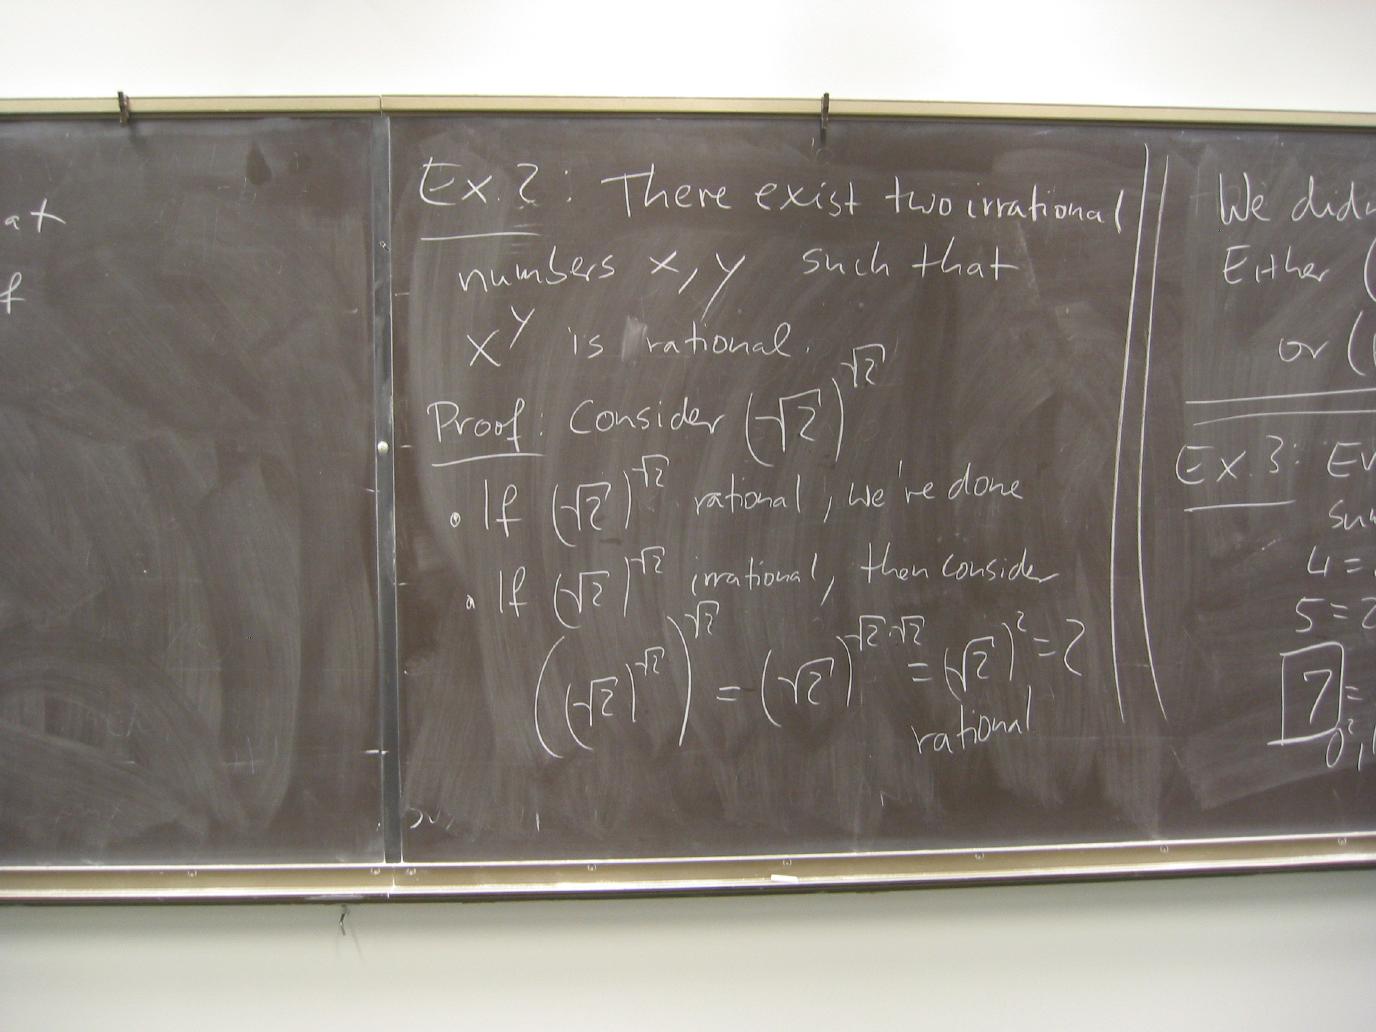 at
f
Ex. 2: There exist two irrational
numbers x, y such that
x^y is rational.
Proof: Consider (√2)^√2
• If (√2)^√2 rational, we're done
• If (√2)^√2 irrational, then consider
((√2)^√2)^√2 = (√2)^√2·√2 = (√2)^2 = 2
rational
We didn
Either (
or (
Ex. 3: Ev
sum
4 =
5 = 2
7 =
0²,